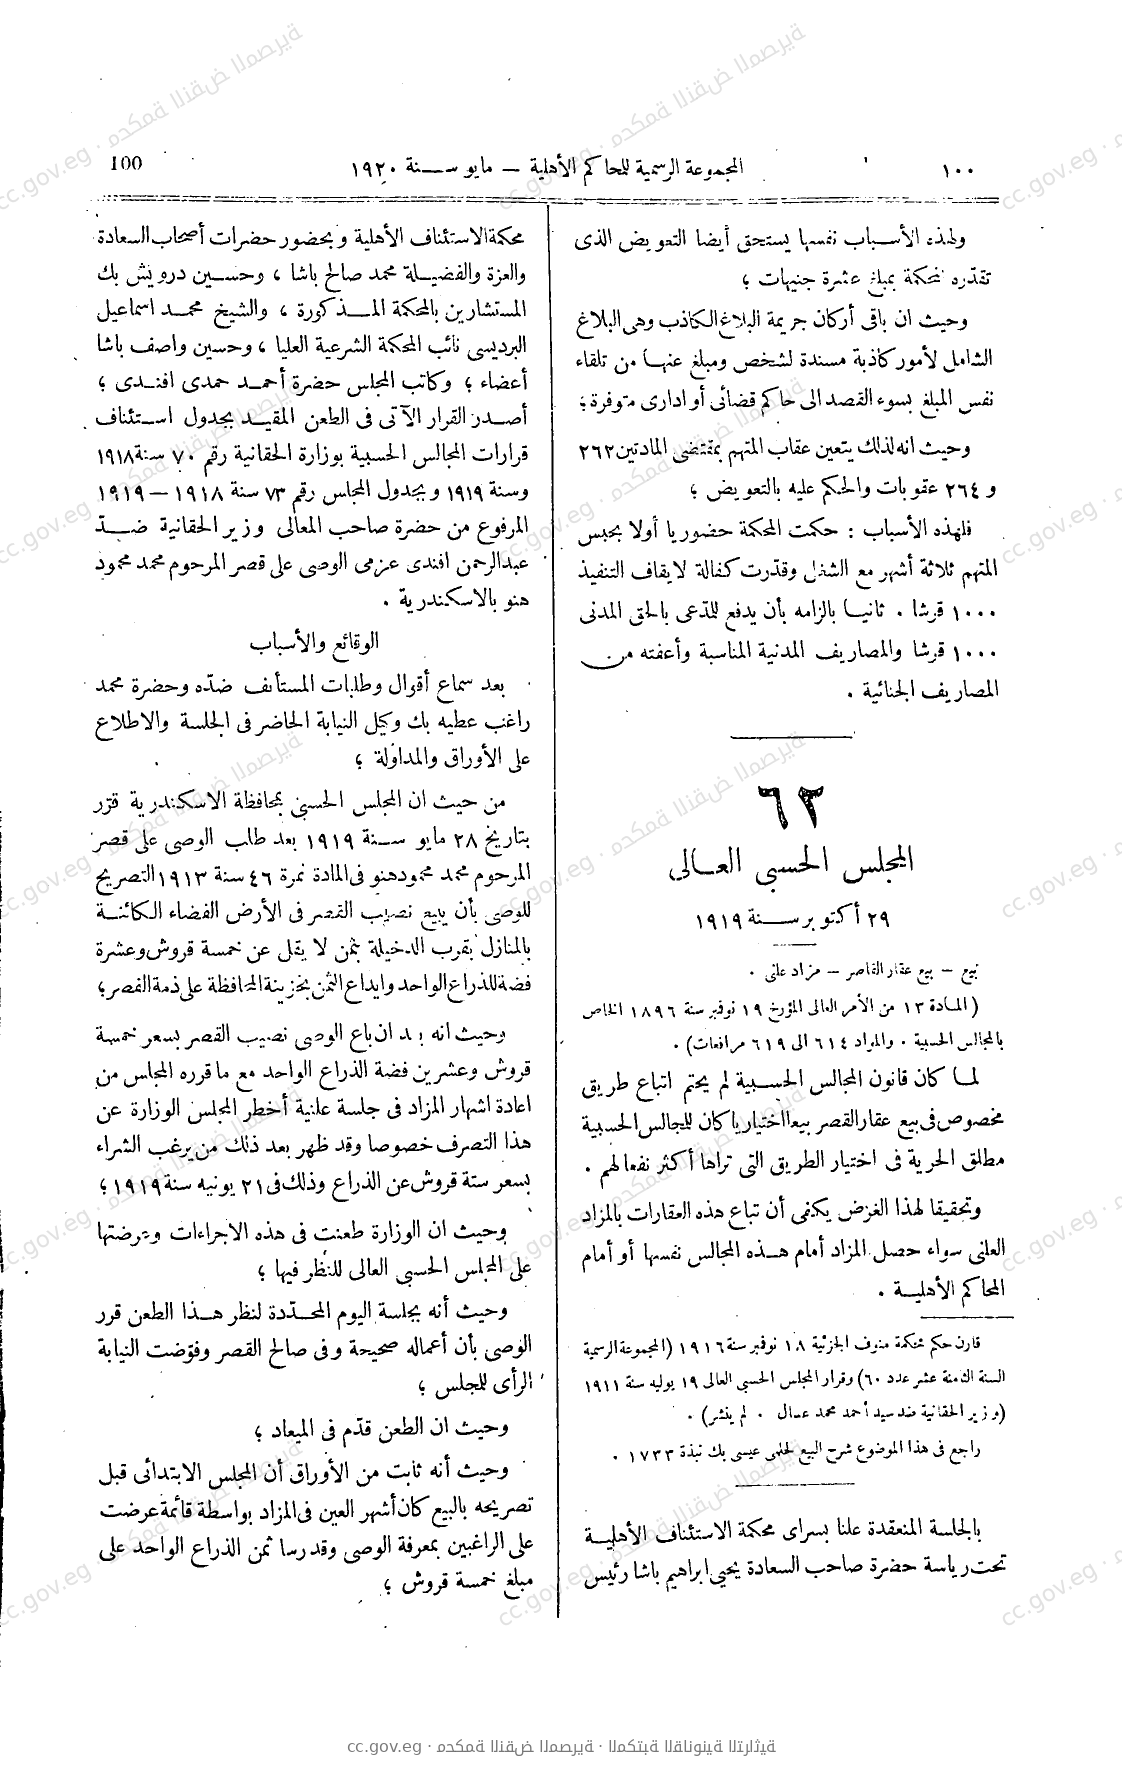 ١٠٠
المجموعة الرسمية للمحاكم الأهلية — مايو سنة ١٩٢٠
100
ولهذه الأسباب نفسها يستحق أيضا التعويض الذى
تقدّره المحكمة بمبلغ عشرة جنيهات ؛
وحيث ان باقى أركان جريمة البلاغ الكاذب وهى البلاغ
الشامل لأمور كاذبة مسندة لشخص ومبلغ عنها من تلقاء
نفس المبلغ بسوء القصد الى حاكم قضائى أو ادارى متوفرة ؛
وحيث انه لذلك يتعين عقاب المتهم بمقتضى المادتين ٢٦٢
و ٢٦٤ عقوبات والحكم عليه بالتعويض ؛
فلهذه الأسباب : حكمت المحكمة حضوريا أولا بحبس
المتهم ثلاثة أشهر مع الشغل وقدّرت كفالة لايقاف التنفيذ
١٠٠٠ قرشا . ثانيا بالزامه بأن يدفع للمدّعى بالحق المدنى
١٠٠٠ قرشا والمصاريف المدنية المناسبة وأعفته من
المصاريف الجنائية .
٦٢
المجلس الحسبى العالى
٢٩ أكتوبر سنة ١٩١٩
بيع — بيع عقار القاصر — مزاد علنى .
(المادة ١٣ من الأمر العالى المؤرخ ١٩ نوفمبر سنة ١٨٩٦ الخاص
بالمجالس الحسبية . والمواد ٦١٤ الى ٦١٩ مرافعات) .
لما كان قانون المجالس الحسبية لم يحتم اتباع طريق
مخصوص فى بيع عقار القصر بيعا اختياريا كان للمجالس الحسبية
مطلق الحرية فى اختيار الطريق التى تراها أكثر نفعا لهم .
وتحقيقا لهذا الغرض يكفى أن تباع هذه العقارات بالمزاد
العلنى سواء حصل المزاد أمام هذه المجالس نفسها أو أمام
المحاكم الأهلية .
قارن حكم محكمة منوف الجزئية ١٨ نوفمبر سنة ١٩١٦ (المجموعة الرسمية
السنة الثامنة عشر عدد ٦٠) وقرار المجلس الحسبى العالى ١٩ يوليه سنة ١٩١١
(وزير الحقانية ضد سيد أحمد محمد عسال . لم ينشر) .
راجع فى هذا الموضوع شرح البيع لحلمى عيسى بك نبذة ١٧٣٣ .
بالجلسة المنعقدة علنا بسراى محكمة الاستئناف الأهلية
تحت رياسة حضرة صاحب السعادة يحيى ابراهيم باشا رئيس
محكمة الاستئناف الأهلية وبحضور حضرات أصحاب السعادة
والعزة والفضيلة محمد صالح باشا ، وحسين درويش بك
المستشارين بالمحكمة المذكورة ، والشيخ محمد اسماعيل
البرديسى نائب المحكمة الشرعية العليا ، وحسين واصف باشا
أعضاء ؛ وكاتب المجلس حضرة أحمد حمدى افندى ؛
أصدر القرار الآتى فى الطعن المقيد بجدول استئناف
قرارات المجالس الحسبية بوزارة الحقانية رقم ٧٠ سنة ١٩١٨
وسنة ١٩١٩ وبجدول المجلس رقم ٧٣ سنة ١٩١٨ — ١٩١٩
المرفوع من حضرة صاحب المعالى وزير الحقانية ضدّ
عبدالرحمن افندى عزمى الوصى على قصر المرحوم محمد محمود
هنو بالاسكندرية .
الوقائع والأسباب
بعد سماع أقوال وطلبات المستأنف ضدّه وحضرة محمد
راغب عطيه بك وكيل النيابة الحاضر فى الجلسة والاطلاع
على الأوراق والمداولة ؛
من حيث ان المجلس الحسبى بمحافظة الاسكندرية قرّر
بتاريخ ٢٨ مايو سنة ١٩١٩ بعد طلب الوصى على قصر
المرحوم محمد محمود هنو فى المادة نمرة ٤٦ سنة ١٩١٣ التصريح
للوصى بأن يبيع نصيب القصر فى الأرض الفضاء الكائنة
بالمنازل بقرب الدخيلة بثمن لا يقل عن خمسة قروش وعشرة
فضة للذراع الواحد وايداع الثمن بخزينة المحافظة على ذمة القصر ؛
وحيث انه بعد ان باع الوصى نصيب القصر بسعر خمسة
قروش وعشرين فضة الذراع الواحد مع ما قرره المجلس من
اعادة اشهار المزاد فى جلسة علنية أخطر المجلس الوزارة عن
هذا التصرف خصوصا وقد ظهر بعد ذلك من يرغب الشراء
بسعر ستة قروش عن الذراع وذلك فى ٢١ يونيه سنة ١٩١٩ ؛
وحيث ان الوزارة طعنت فى هذه الاجراءات وعرضتها
على المجلس الحسبى العالى للنظر فيها ؛
وحيث أنه بجلسة اليوم المحدّدة لنظر هذا الطعن قرر
الوصى بأن أعماله صحيحة وفى صالح القصر وفوّضت النيابة
الرأى للمجلس ؛
وحيث ان الطعن قدّم فى الميعاد ؛
وحيث أنه ثابت من الأوراق أن المجلس الابتدائى قبل
تصريحه بالبيع كان أشهر العين فى المزاد بواسطة قائمة عرضت
على الراغبين بمعرفة الوصى وقد رسا ثمن الذراع الواحد على
مبلغ خمسة قروش ؛
cc.gov.eg · محكمة النقض المصرية · المكتبة القانونية التراثية